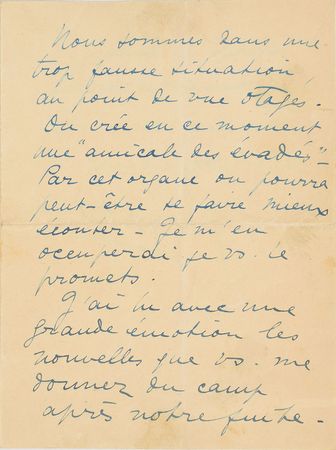 Nous sommes dans une
trop fausse situation
au point de vue otages.
On crée en ce moment
une "amicale des évadés" -
Par cet organe on pourra
peut-être se faire mieux
écouter - Je m'en
occuperai je vs. le
promets.
J'ai lu avec une
grande émotion les
nouvelles que vs. me
donnez du camp
après notre fuite -